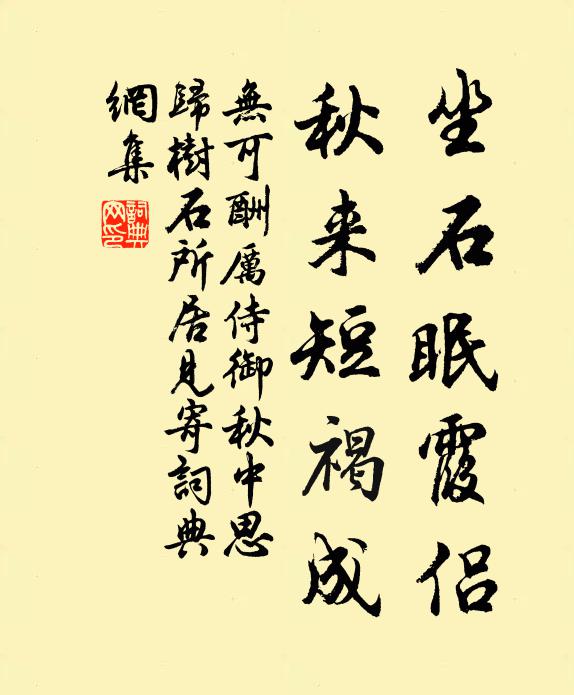 坐石眠霞侶
秋来短褐成
無可酬厲侍御秋中思
歸樹石所居見寄詞典
網集
詞典網印